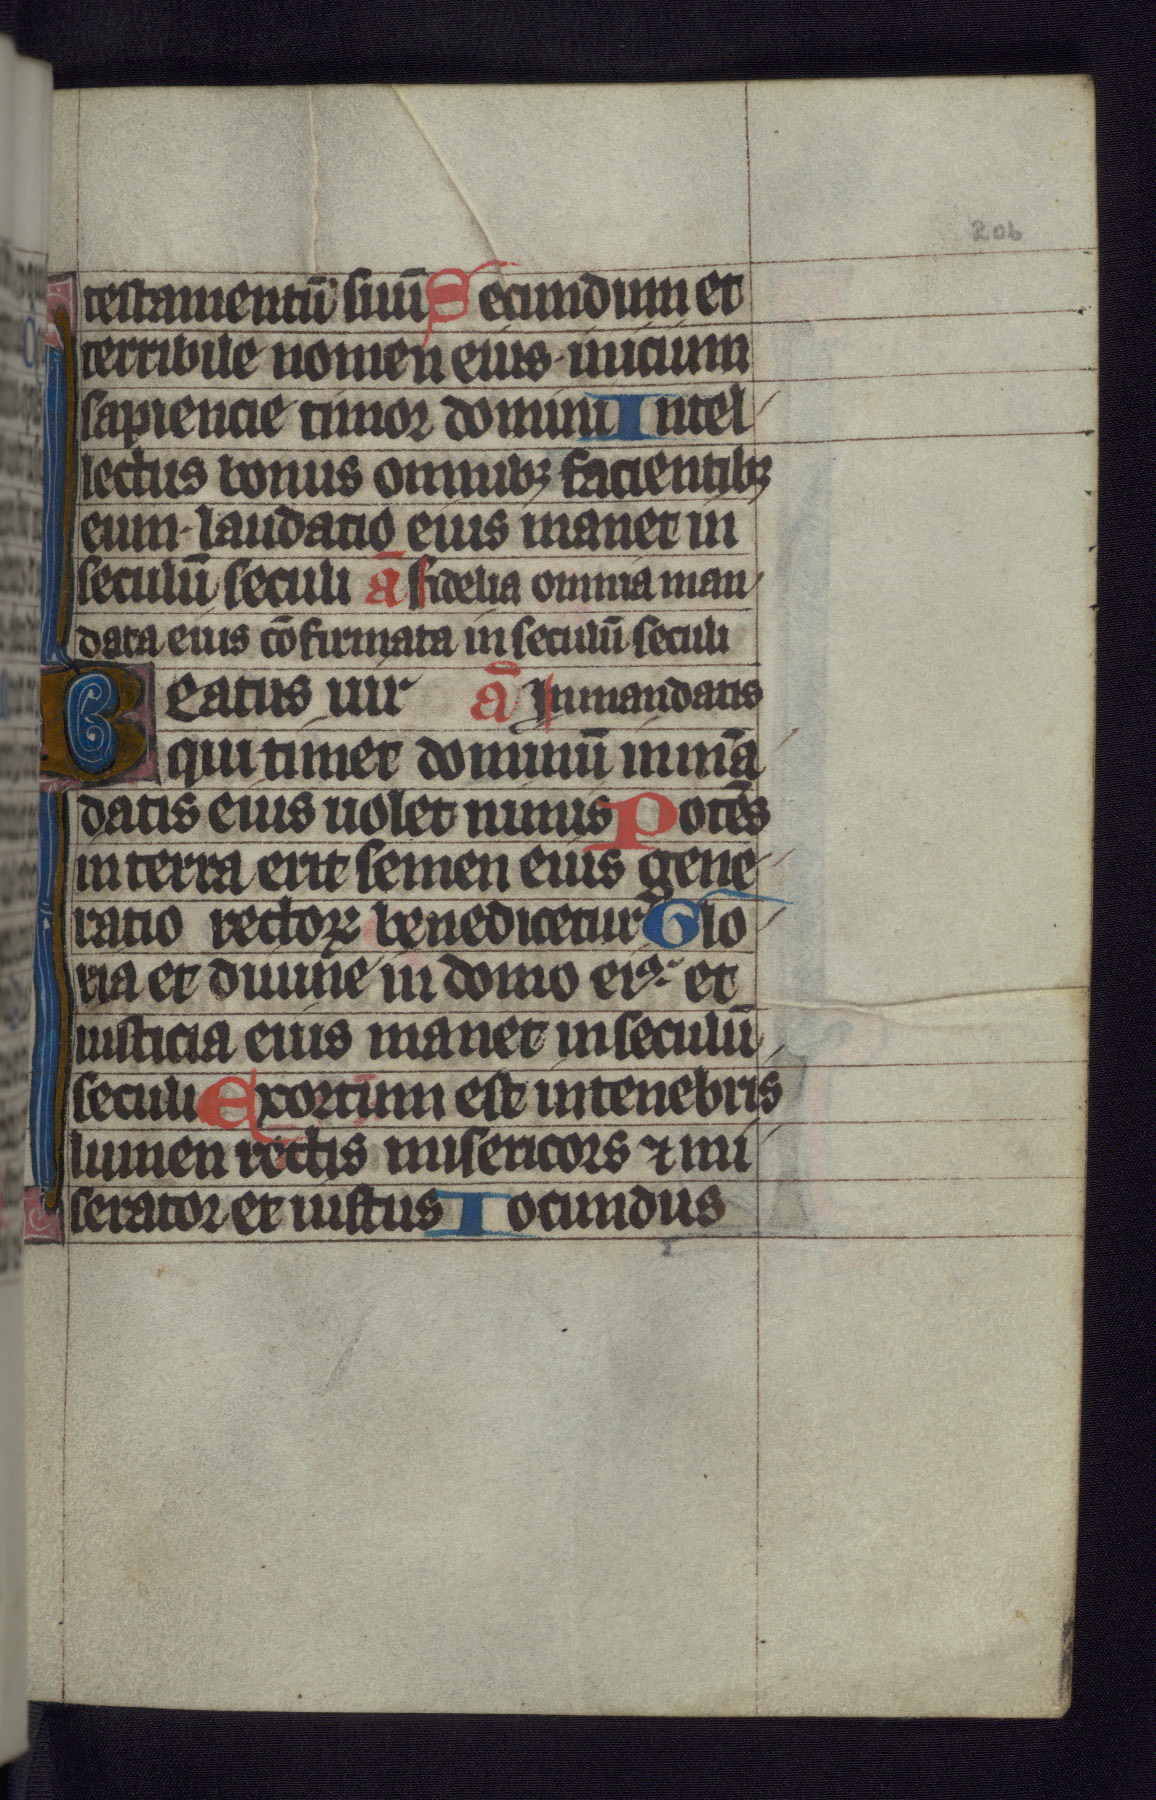 206
testamentū suū Secundum et
terribile nomen eius. inicium
sapiencie timor domini Intel
lectus bonus omnibꝫ facientibꝫ
eum. laudatio eius manet in
seculū seculi ā fidelia omnia man
data eius cōfirmata in seculū seculi
Beatus uir ā In mandatis
qui timet dominū in mā
datis eius uolet nimis Potēs
in terra erit semen eius gene
ratio rectoꝝ benedicetur Glo
ria et diuitie in domo eiꝰ. et
iusticia eius manet in seculū
seculi Exortum est in tenebris
lumen rectis misericors ⁊ mi
serator et iustus Iocundus